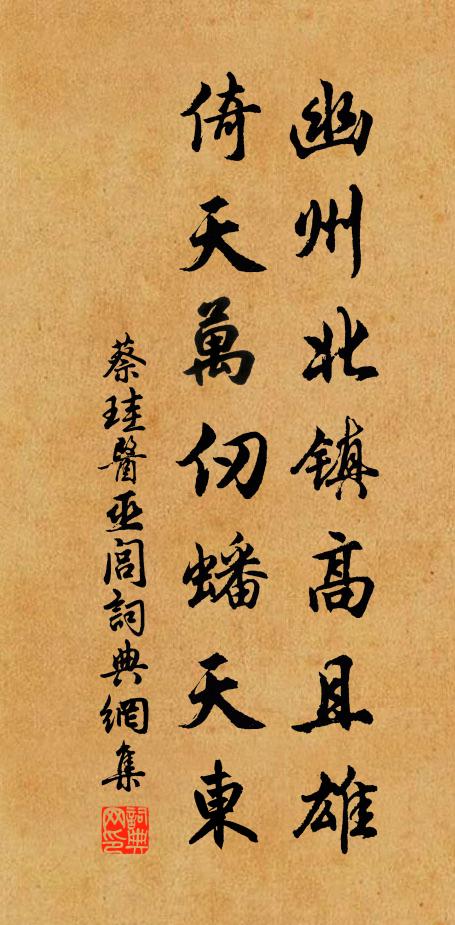 幽州北镇高且雄
倚天萬仞蟠天東
蔡珪醫巫閭詞典網集
詞典網印